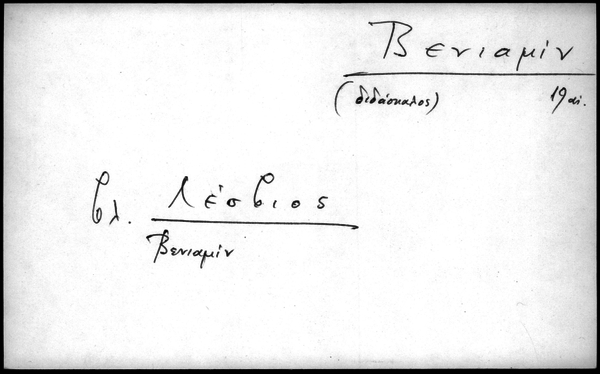 Βενιαμίν
(διδάσκαλος) 19 αἰ.
βλ. Λέσβιος
Βενιαμίν